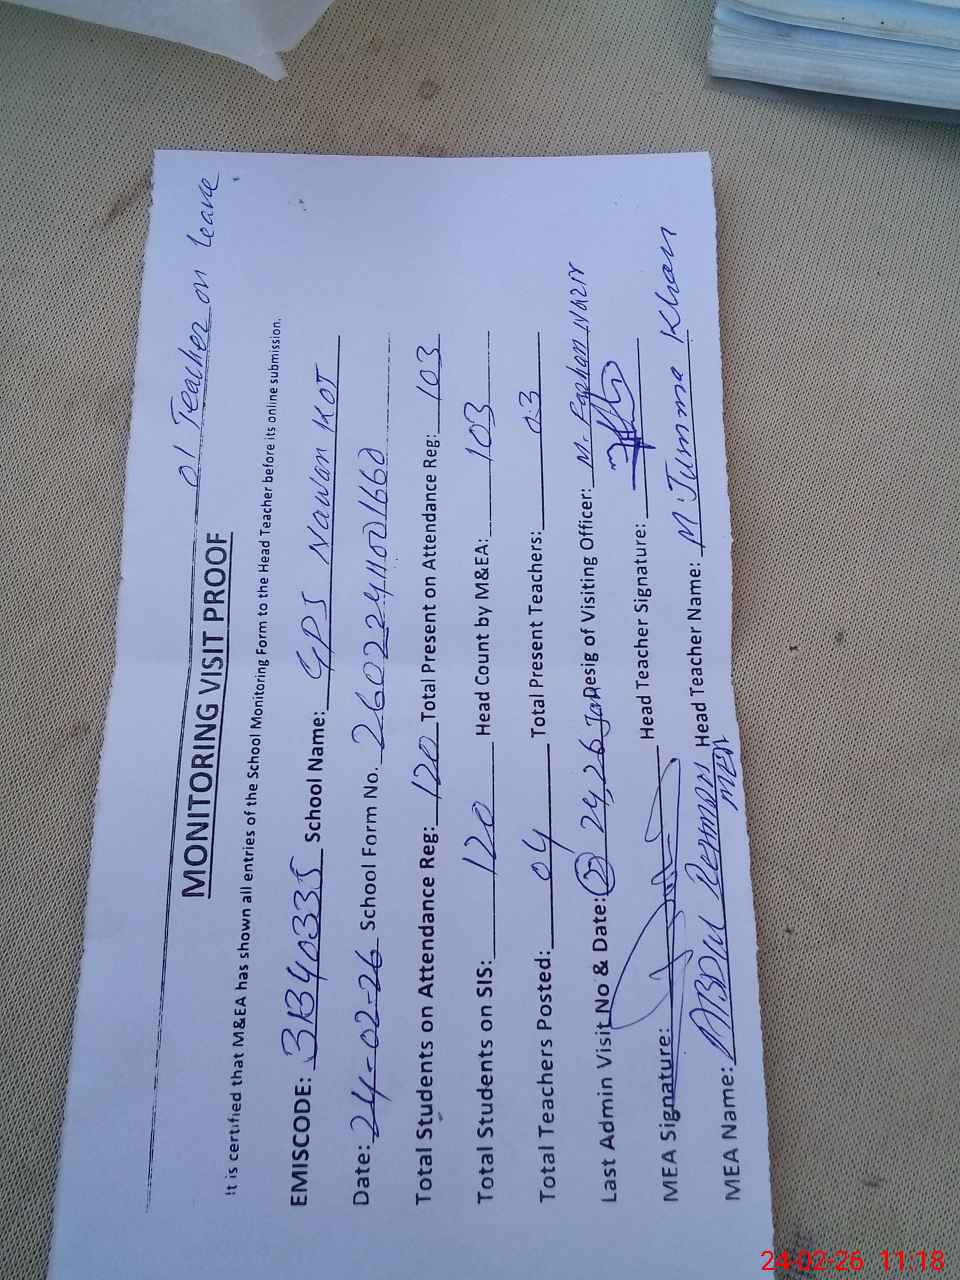 01 Teacher on leave
MONITORING VISIT PROOF
It is certified that M&EA has shown all entries of the School Monitoring Form to the Head Teacher before its online submission.
EMISCODE: 31340335 School Name: GPS Nawan Kot
Date: 24-02-26 School Form No. 26022411001660
Total Students on Attendance Reg: 120 Total Present on Attendance Reg: 103
Total Students on SIS: 120 Head Count by M&EA: 103
Total Teachers Posted: 04 Total Present Teachers: 03
Last Admin Visit No & Date: (2) 24, 26 Jan Desig of Visiting Officer: M.
MEA Signature: Head Teacher Signature:
MEA Name: ABDUL REHMAN MEA Head Teacher Name: M Jumma Khan
24-02-26 11:18